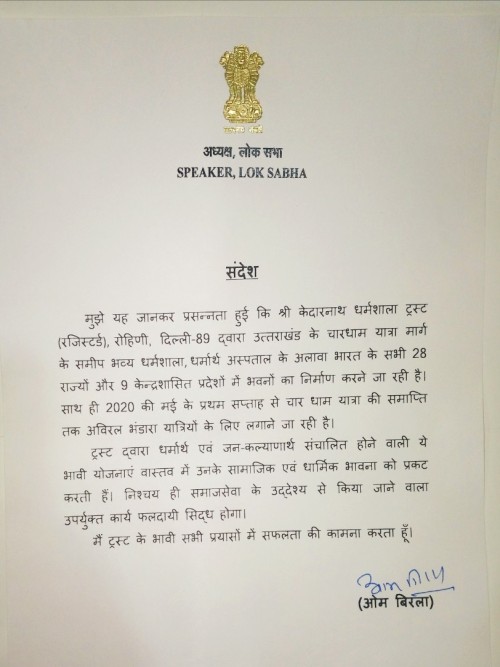 अध्यक्ष, लोक सभा
SPEAKER, LOK SABHA
संदेश
मुझे यह जानकर प्रसन्नता हुई कि श्री केदारनाथ धर्मशाला ट्रस्ट
(रजिस्टर्ड), रोहिणी, दिल्ली-89 द्वारा उत्तराखंड के चारधाम यात्रा मार्ग
के समीप भव्य धर्मशाला, धर्मार्थ अस्पताल के अलावा भारत के सभी 28
राज्यों और 9 केन्द्रशासित प्रदेशों में भवनों का निर्माण करने जा रही है।
साथ ही 2020 की मई के प्रथम सप्ताह से चार धाम यात्रा की समाप्ति
तक अविरल भंडारा यात्रियों के लिए लगाने जा रही है।
ट्रस्ट द्वारा धर्मार्थ एवं जन-कल्याणार्थ संचालित होने वाली ये
भावी योजनाएं वास्तव में उनके सामाजिक एवं धार्मिक भावना को प्रकट
करती हैं। निश्चय ही समाजसेवा के उद्देश्य से किया जाने वाला
उपर्युक्त कार्य फलदायी सिद्ध होगा।
मैं ट्रस्ट के भावी सभी प्रयासों में सफलता की कामना करता हूँ।
(ओम बिरला)